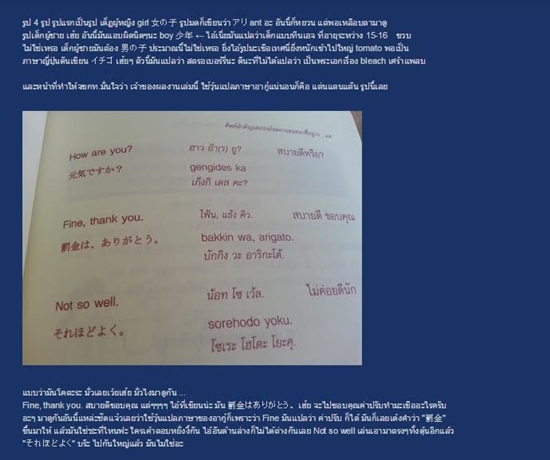 รูป 4 รูป รูปแรกเป็นรูป เด็กผู้หญิง girl 女の子 รูปมดก็เขียนว่า アリ ant อะ อันนี้ก็หยวน แต่พอเหลือบตามาดู
รูปเด็กผู้ชาย เฮ้ย อันนี้มันแอบผิดนิดๆนะ boy 少年 ← ไอ้เนี่ยมันแปลว่าเด็กแบบทีนเอจ ที่อายุระหว่าง 15-16 ขวบ
ไม่ใช่เหรอ เด็กผู้ชายมันต้อง 男の子 ประมาณนี้ไม่ใช่เหรอ ยิ่งไอ้รูปมะเขือเทศนี่ยิ่งหนักเข้าไปใหญ่ tomato พอเป็น
ภาษาญี่ปุ่นดันเขียน イチゴ เฮ้ยๆ ตัวนี้มันแปลว่า สตรอเบอร์รี่นะ ดีนะที่ไม่ได้แปลว่า เป็นพระเอกเรื่อง bleach เศร้าแพลบ
และหน้าที่ทำให้จขกท.มั่นใจว่า เจ้าของผลงานเล่มนี้ ใช้วุ้นแปลภาษาอากู๋แน่นอนก็คือ แต่นแตนแต๊น รูปนี้เลย
How are you?
ฮาว อ๊า(ร) ยู?
สบายดีหรือ?
元気ですか？
gengides ka
เก็งกิ เดส คะ?
Fine, thank you.
ไฟ้น, แธ้ง คิว.
สบายดี ขอบคุณ
罰金は、ありがとう。
bakkin wa, arigato.
บักกิง วะ อาริกะโต้.
Not so well.
น้อท โซ เว้ล.
ไม่ค่อยดีนัก
それほどよく。
sorehodo yoku.
โซเระ โฮโดะ โยะคุ.
แบบว่ามันโคตะระ มั่วเลยเว้ยเฮ้ย มั่วไงมาดูกัน ...
Fine, thank you. สบายดีขอบคุณ แต่ๆๆๆๆ ไอ้ที่เขียนน่ะมัน 罰金はありがとう。เฮ้ย จะไปขอบคุณค่าปรับทำมะเขืออะไรครับ
อะๆ มาดูกันอันนี้แหล่ะชัดแล้วเลยว่าใช้วุ้นแปลภาษาของอากู๋ก็เพราะว่า Fine มันแปลว่า ค่าปรับ ก็ได้ มันก็เลยเด้งคำว่า "罰金"
ขึ้นมาให้ แล้วมันใช่ซะที่ไหนฟะ ใครเค้าตอบหยั่งงี้กัน ไอ้อันด้านล่างก็ไม่ได้ต่างกันเลย Not so well เล่นเอามาตรงๆทั้งดุ้นอีกแล้ว
"それほどよく" บร๊ะ ไปกันใหญ่แล้ว มันไม่ใช่อะ